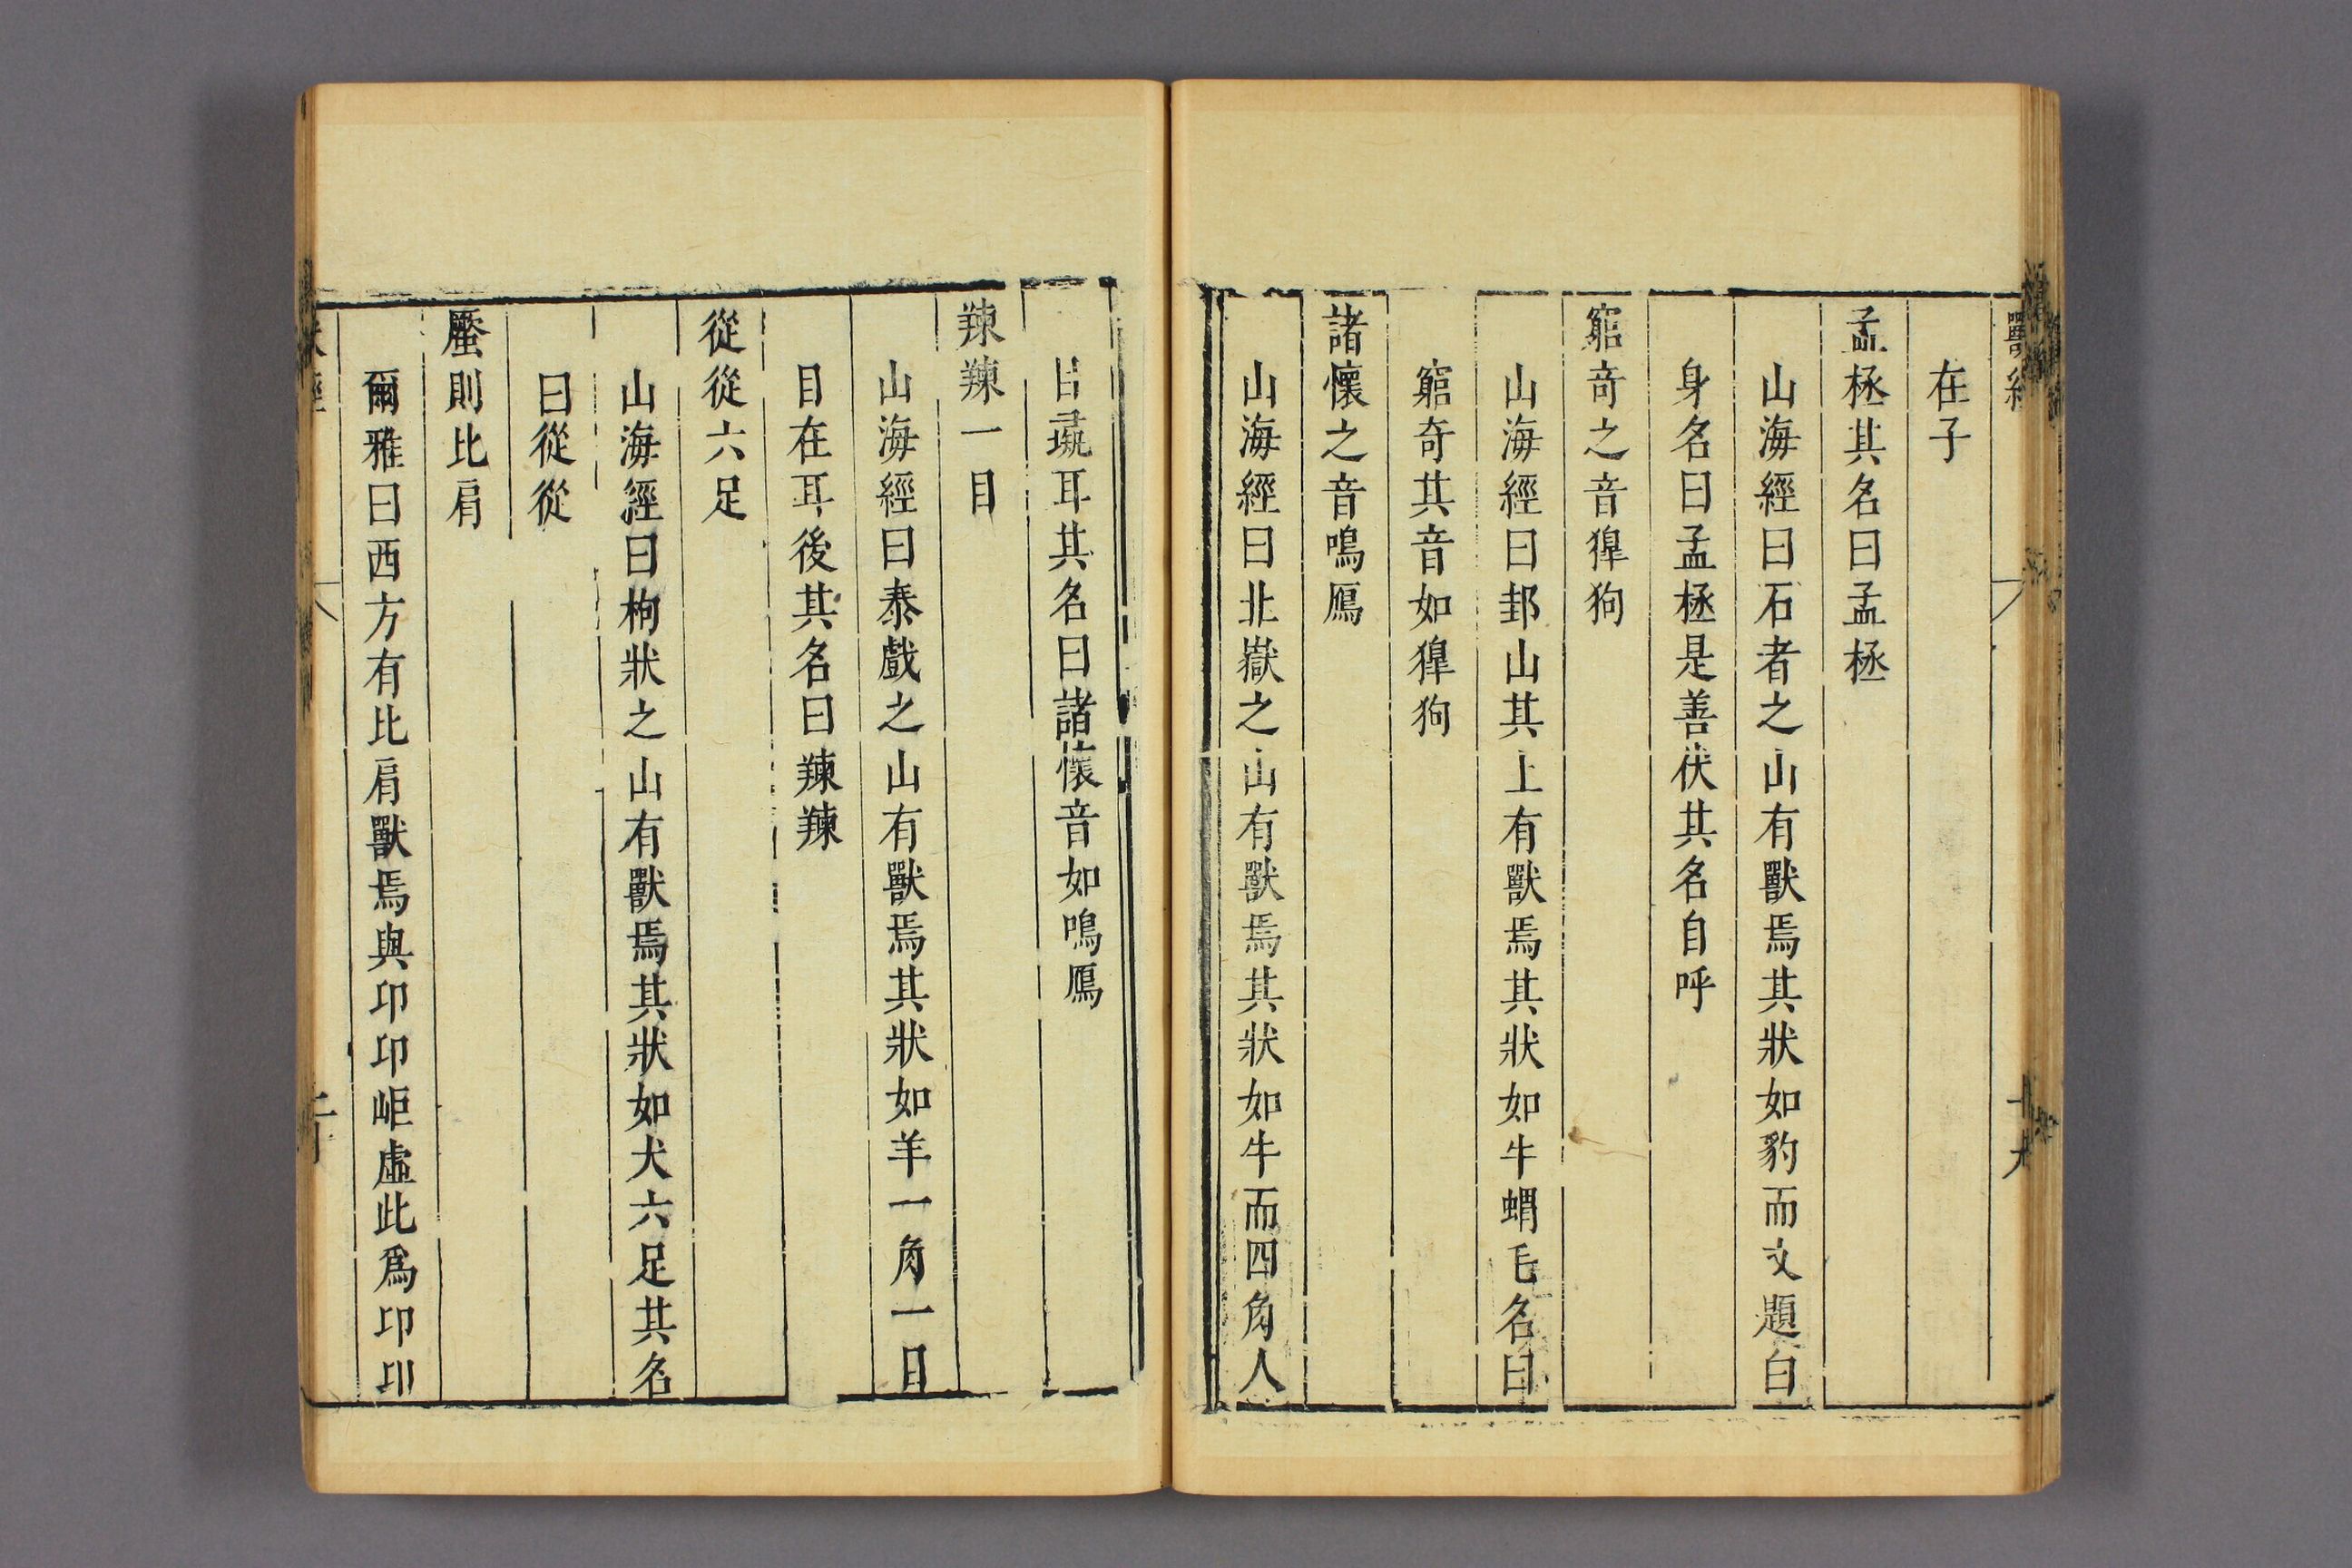 獸經
十九
在子
孟極其名曰孟極
山海經曰石者之山有獸焉其狀如豹而文題白
身名曰孟極是善伏其名自呼
窮奇之音獋狗
山海經曰邽山其上有獸焉其狀如牛蝟毛名曰
窮奇其音如獋狗
諸懷之音鳴鴈
山海經曰北嶽之山有獸焉其狀如牛而四角人
目彘耳其名曰諸懷音如鳴鴈
䍶䍶一目
山海經曰泰戲之山有獸焉其狀如羊一角一目
目在耳後其名曰䍶䍶
從從六足
山海經曰枸狀之山有獸焉其狀如犬六足其名
曰從從
蟨則比肩
爾雅曰西方有比肩獸焉與卭卭岠虛此爲卭卭